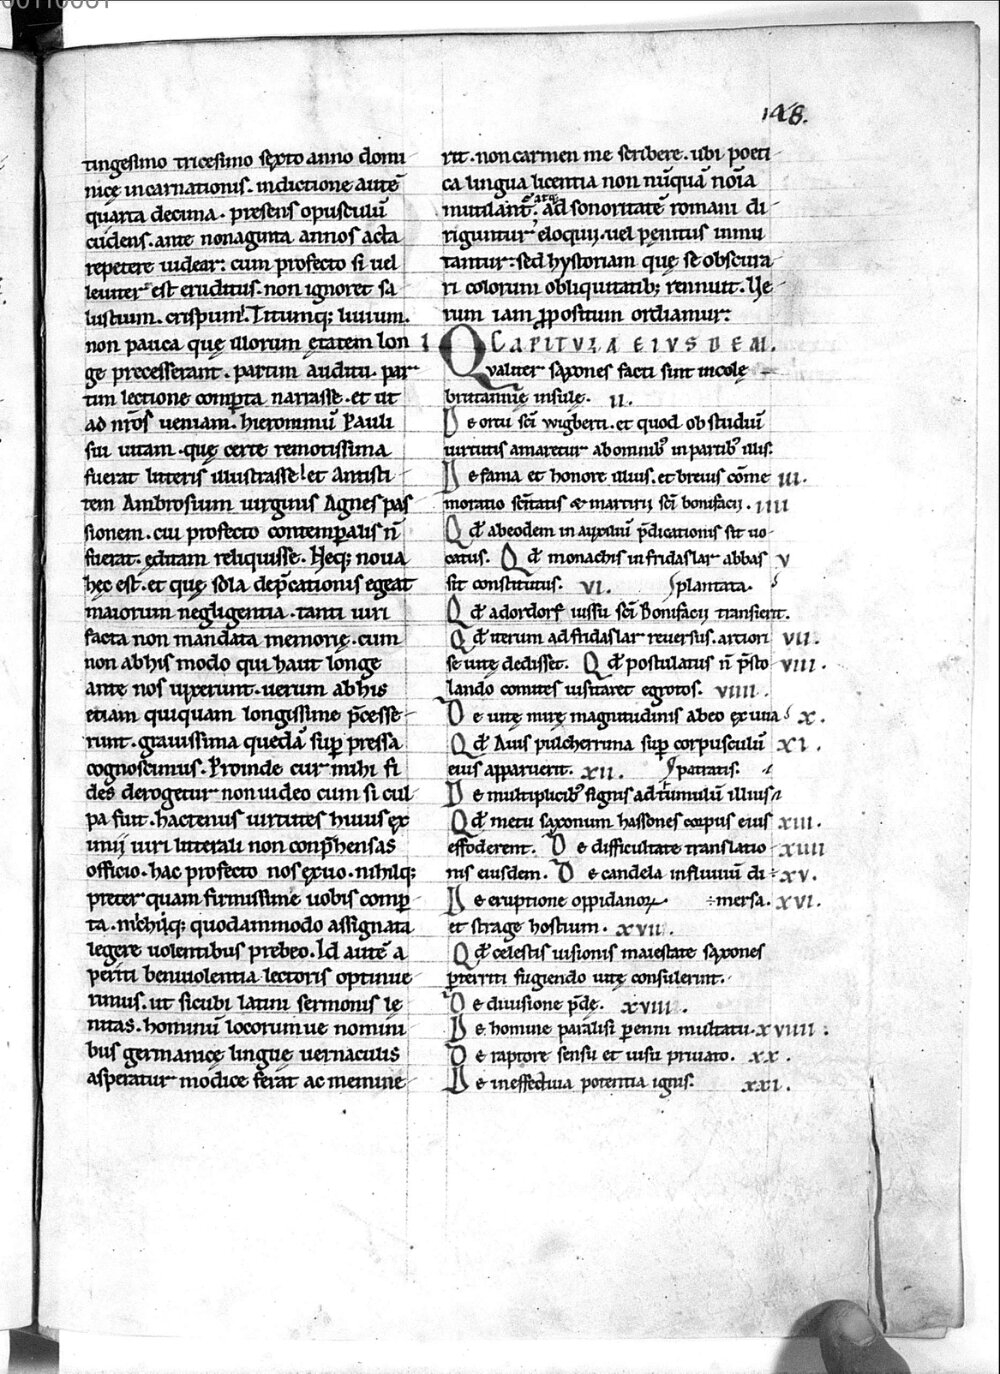 148.
tingesimo tricesimo sexto anno domi
nicę incarnationis. indictione autē
quarta decima. presens opusculū
cudens. ante nonaginta annos acta
repetere videar: cum profecto si vel
leviter est eruditus. non ignoret sa
lustium. crispum. Titumq; livium.
non pauca quę illorum ętatem lon
ge precesserant. partim auditu. par
tim lectione comꝑta narrasse. et ut
ad nr̄os veniam. hieronimū Pauli
sui vitam. quę certe remotissima
fuerat litteris illustrasse! et Antisti
tem Ambrosium virginis Agnes pas
sionem. cui profecto contemꝑalis n̄
fuerat. editam reliquisse. Neq; nova
hęc est. et quę sola dep̄cationis egeat
maiorum negligentia. tanti viri
facta non mandata memorię. cum
non abhis modo qui haut longe
ante nos vixerunt. verum abhis
etiam quiquam longissime p̄cesse
runt. gravissima quedā suꝑ pressa
cognoscimus. Proinde cur mihi fi
des derogetur non video cum si cul
pa fuit. hactenus virtutes huius ex
imij viri litterali non conp̄hensas
officio. hac profecto nos exuo. nihilq;
preter quam firmissime vobis comꝑ
ta. michiq; quodammodo assignata
legere volentibus prebeo. Id autē a
periti benivolentia lectoris optinue
rimus. ut sicubi latini sermonis le
nitas. hominū locorumve nomini
bus germanicę linguę vernaculis
asperatur modice ferat ac memine
rit. non carmen me scribere. ubi poeti
ca lingua licentia non nūquā noīa
mutilant. atq; ad sonoritatē romani di
riguntur eloquii. vel penitus inmu
tantur: sed hystoriam quę se obscura
ri colorum obliquitatib; rennuit. Ve
rum iam ꝓpositum ordiamur:
CAPITULA EIUSDEM.
I Qualiter saxones facti sint incolę
britannię insulę. II.
De ortu scī wigberti. et quod ob studiū
virtutis amaretur ab omnib; in partib; illis.
De fama et honore illius. et brevis cōme III.
moratio scītatis & martirii scī bonifacii. IIII
Qd̄ abeodem in auxiliū p̄dicationis sit vo
catus. Qd̄ monachis in fridaslar abbas V
sit constitutus. VI. plantata.
Qd̄ ad ordorf iussu scī Bonifacii transierit.
Qd̄ iterum ad fridaslar reversus. artiori VII.
se vitę dedisset. Qd̄ postulatus n̄ p̄sto VIII.
lando comites visitaret egrotos. VIIII.
De vitę mirę magnitudinis abeo exuvia X.
Qd̄ Avis pulcherrima suꝑ corpusculū XI.
eius apparuerit. XII. patratis.
De multiplicib; signis ad tumulū illius
Qd̄ metu saxonum hassones corpus eius XIII.
effōderent. De difficultate translatio XIIII
nis eiusdem. De candela in fluviū di XV.
De eruptione oppidanoꝝ mersa. XVI.
et strage hostium. XVII.
Qd̄ celestis visionis maiestate saxones
ꝑterriti fugiendo vitę consulerint.
De divisione p̄dę. XVIII.
De homine paralisi ꝑenni multatu. XVIIII:
De raptore sensu et visu privato. XX.
De ineffectiva potentia ignis. XXI.